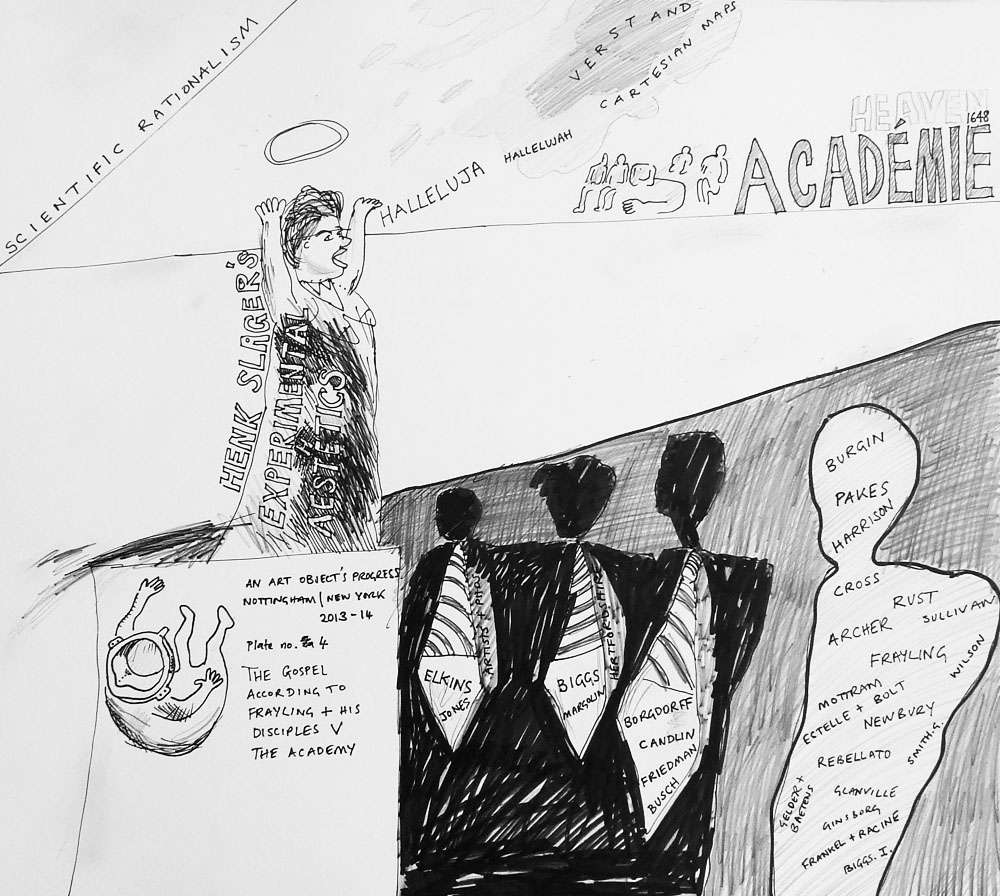 SCIENTIFIC RATIONALISM
VERSTAND
CARTESIAN MAPS
HEAVEN
1648
ACADÉMIE
HALLELUJAH
HALLELUJA
HENK SLAGER'S
EXPERIMENTAL
AESTETICS
AN ART OBJECT'S PROGRESS
NOTTINGHAM | NEW YORK
2013-14
Plate no. 4
THE GOSPEL
ACCORDING TO
FRAYLING + HIS
DISCIPLES V
THE ACADEMY
ELKINS
JONES
ARTISTS + PHD
BIGGS
MARGOLIN
HERTFORDSHIRE
BORGDORFF
CANDLIN
FRIEDMAN
BUSCH
BURGIN
PAKES
HARRISON
CROSS
RUST
SULLIVAN
ARCHER
FRAYLING
WILSON
MOTTRAM
ESTELLE + BOLT
NEWBURY
REBELLATO
SMITH.G.
GELDER +
BAETENS
GLANVILLE
GINSBORG
FRANKEL + RACINE
BIGGS. I.